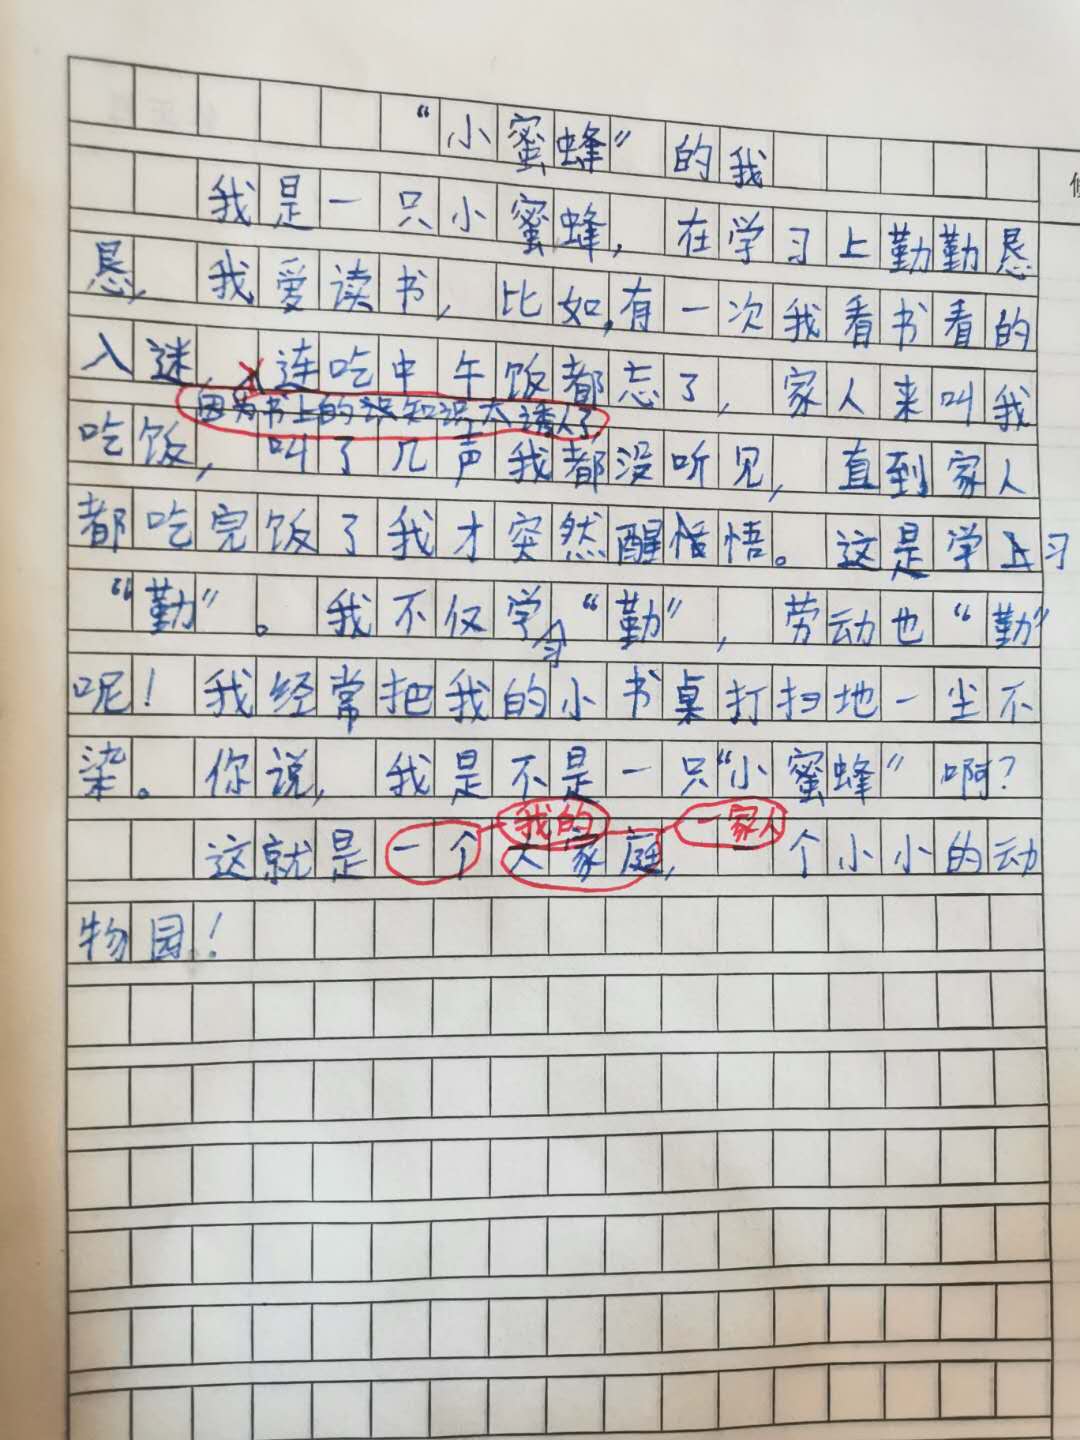 “小蜜蜂”的我
我是一只小蜜蜂，在学习上勤勤恳
恳，我爱读书，比如，有一次我看书看的
入迷，连吃中午饭都忘了，家人来叫我
因为书上的知识太诱人了
吃饭，叫了几声我都没听见，直到家人
都吃完饭了我才突然醒悟。这是学习
“勤”。我不仅学习“勤”，劳动也“勤”
呢！我经常把我的小书桌打扫地一尘不
染。你说，我是不是一只“小蜜蜂”啊？
我的 一家人
这就是一个大家庭，一个小小的动
物园！